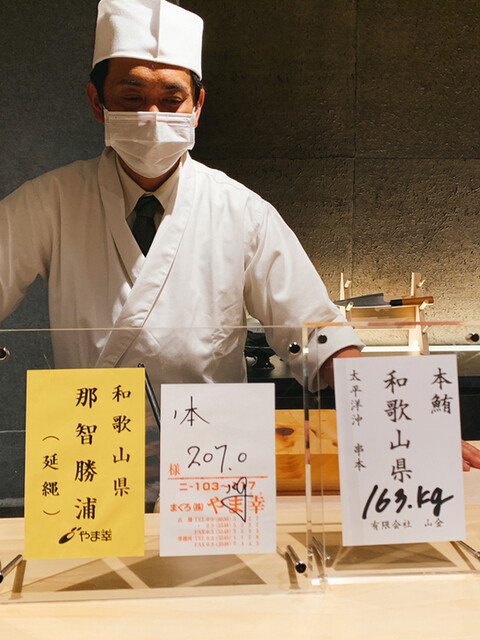 和歌山県
那智勝浦
（延縄）
やま幸
本
207.0
様
まぐろ（株）
やま幸
本鮪
和歌山県
太平洋沖 串本
163.kg
有限会社 山金